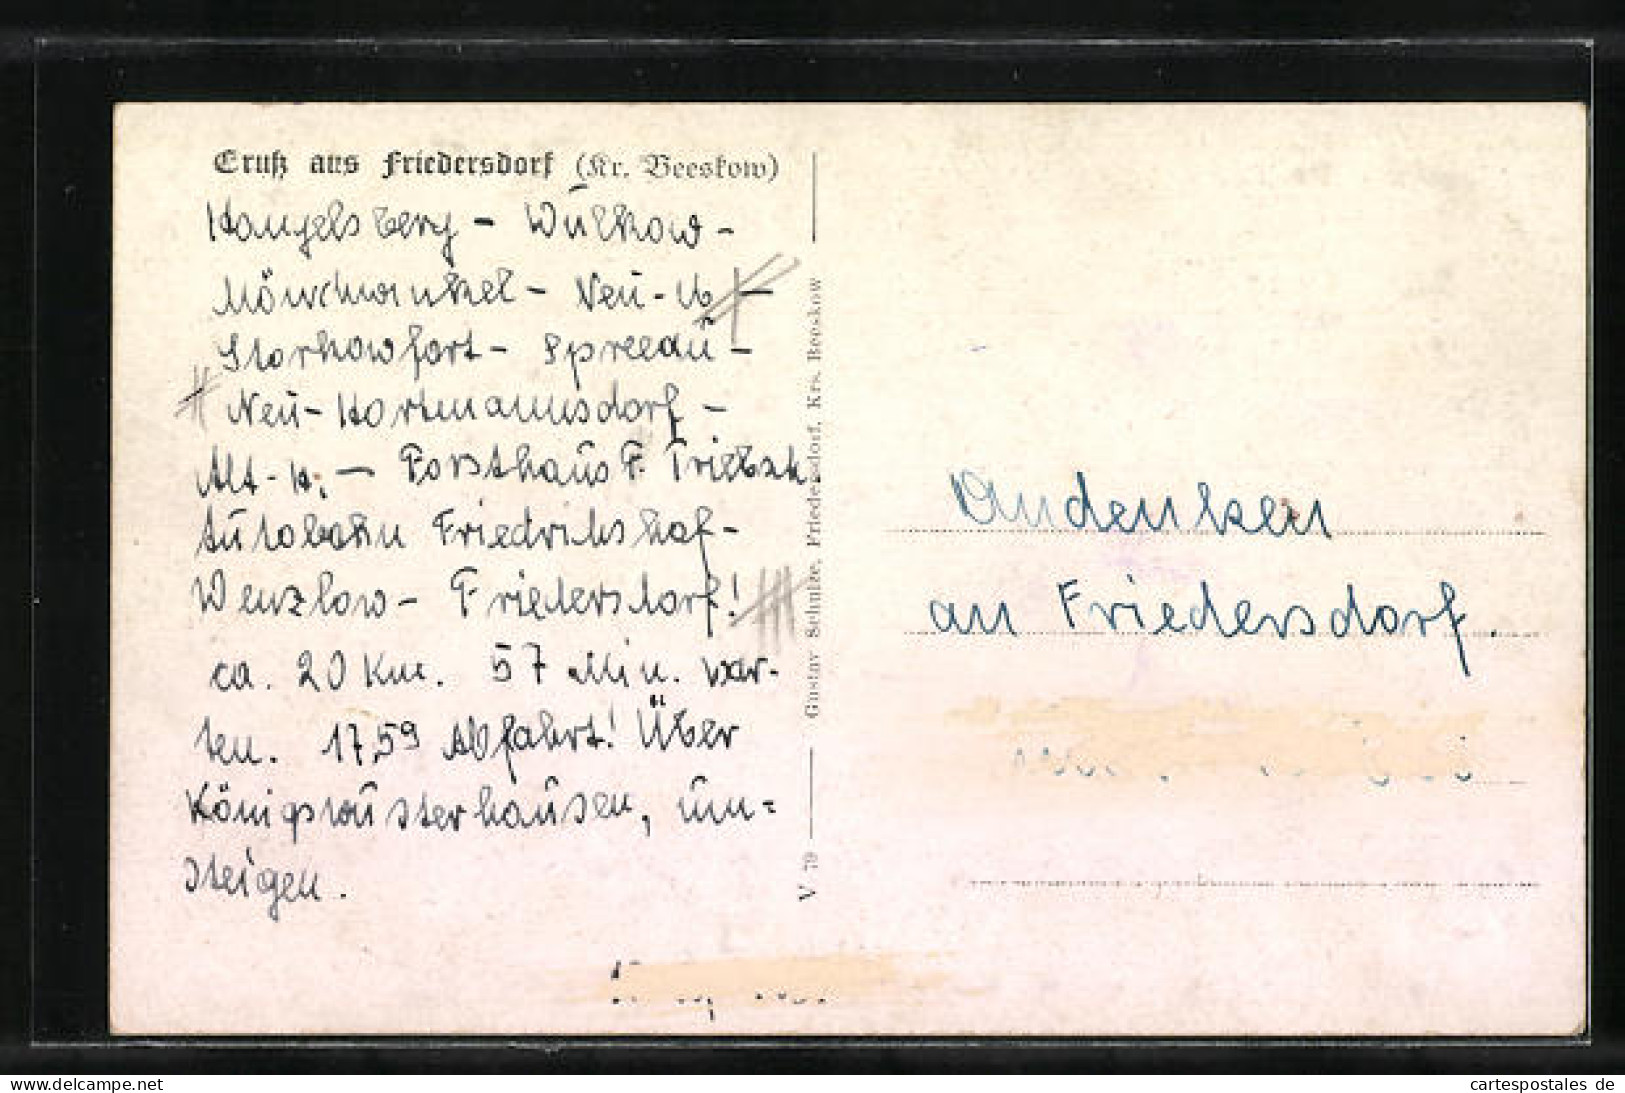 Gruß aus Friedersdorf (Kr. Beeskow)
Hangelsberg - Wulkow -
Mönchwinkel - Neu-M -
Storkowfort - Spreeau -
Neu-Hartmannsdorf -
Alt-H. - Forsthaus F. Triebsch
Autobahn Friedrichshof -
Wenzlow - Friedersdorf!
ca. 20 Km. 57 Min. war-
ten. 17,59 Abfahrt! Über
Königswusterhausen, um-
steigen.
V 79 Gustav Schulze, Friedersdorf, Krs. Beeskow
Andenken
an Friedersdorf.
the best of collections - delcampe.net
cartespostales de